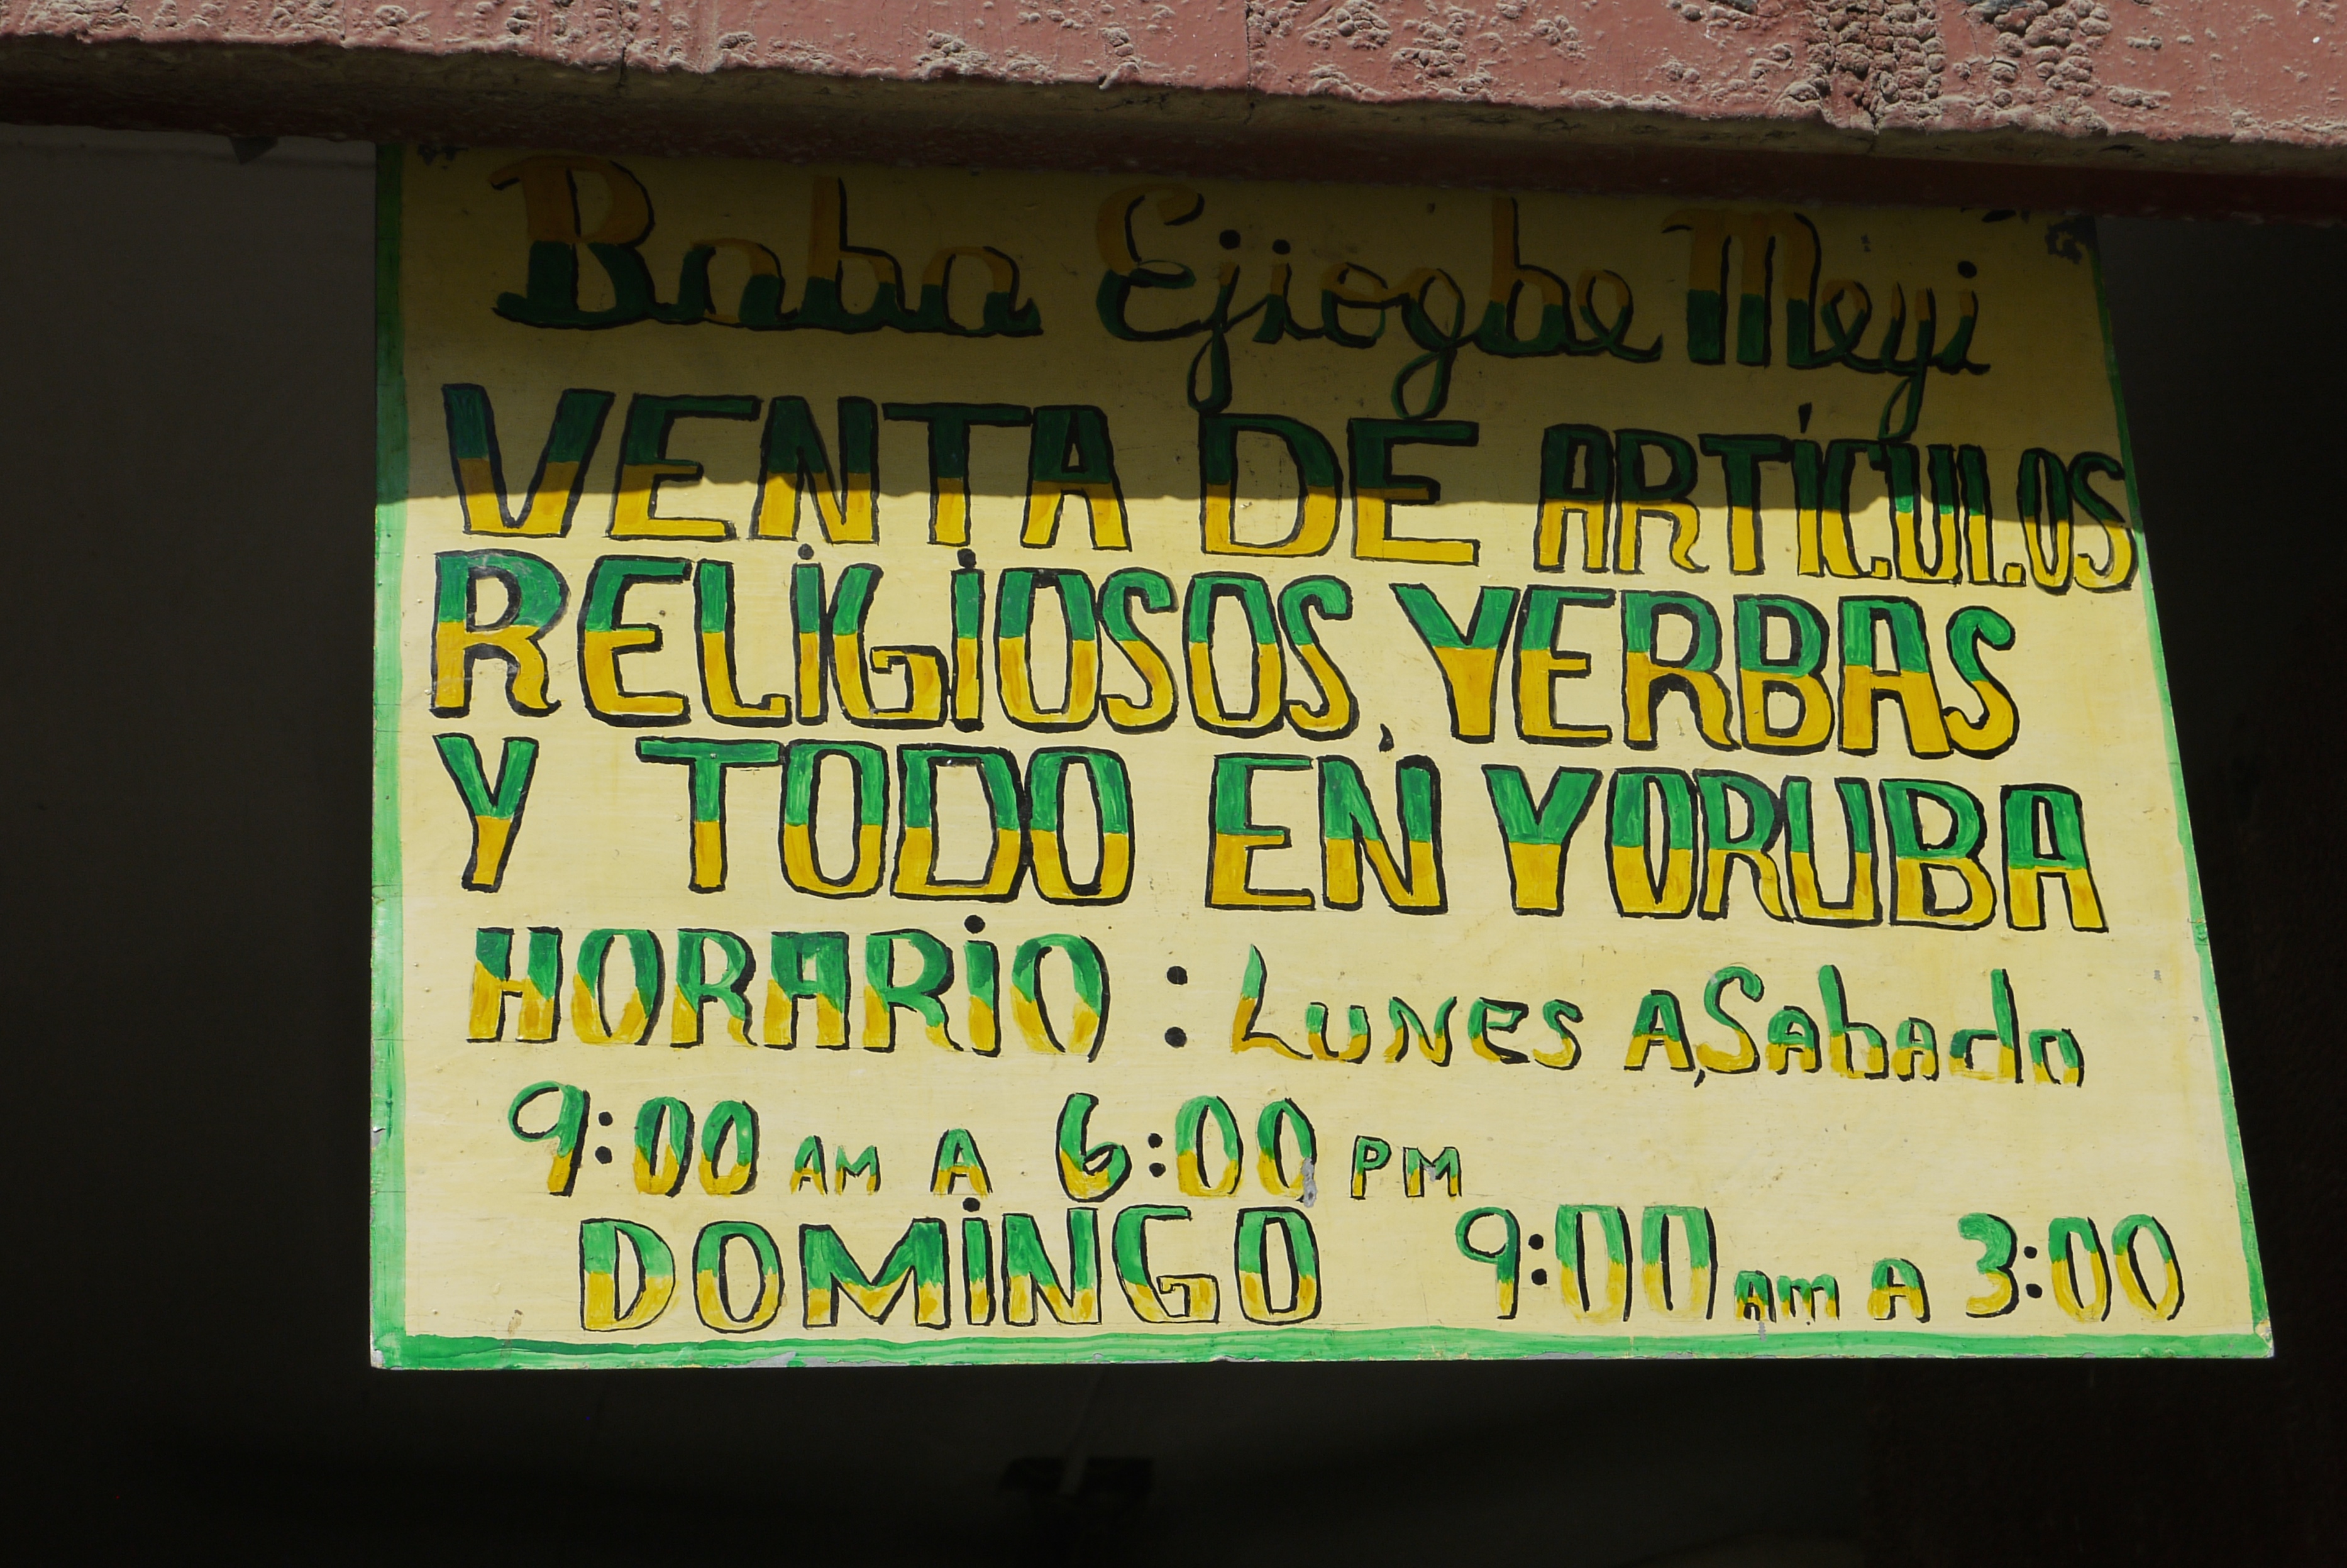 Baba Ejiogbe Meyi
VENTA DE ARTÍCULOS
RELIGIOSOS, YERBAS
Y TODO EN YORUBA
HORARIO : LUNES A SAbAdo
9:00 AM A 6:00 PM
DOMINGO 9:00 AM A 3:00